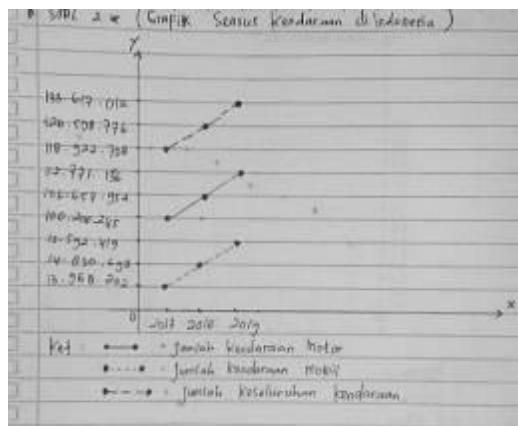 SOAL 2 (Grafik Sensus Kendaraan di Indonesia)
Y
133.617.012
126.508.776
118.922.708
112.771.136
106.657.952
100.200.245
14.830.698
13.968.202
0 2017 2018 2019 X
Ket : = Jumlah kendaraan Motor
= Jumlah kendaraan Mobil
= Jumlah keseluruhan kendaraan